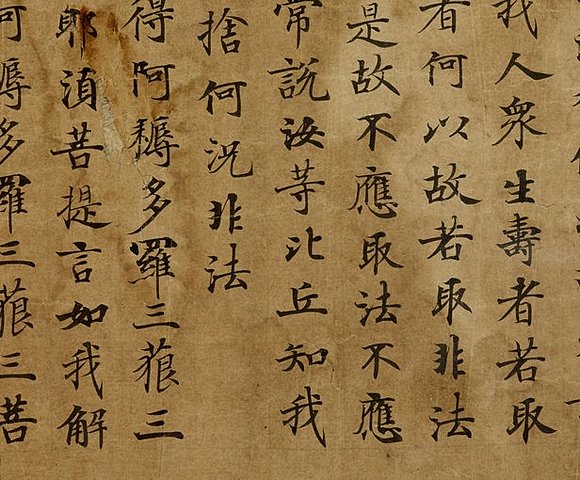 我人衆生壽者若取
者何以故若取非法
是故不應取法不應
常說汝等比丘知我
捨何況非法
得阿耨多羅三藐三
耶湏菩提言如我解
阿耨多羅三藐三菩